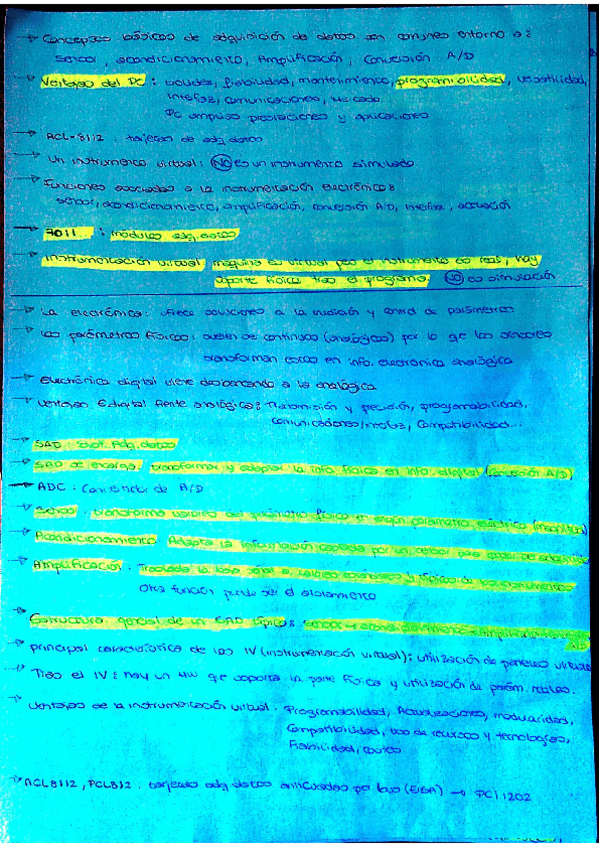 → Conceptos básicos de adquisición de datos son comunes entorno a:
sensor, acondicionamiento, Amplificación, Conversión A/D
→ Ventajas del PC: solidez, fiabilidad, mantenimiento, programabilidad, versatilidad,
interfaz, comunicaciones, mercado
PC amplias prestaciones y aplicaciones
→ ACL-8112: tarjetas de adq datos
→ Un instrumento virtual: NO es un instrumento simulado
→ Funciones asociadas a la instrumentación electrónica:
sensor, acondicionamiento, amplificación, conversión A/D, interfaz, actuación
→ 7011...: módulos adq. datos
→ Instrumentación virtual: máquina es virtual pero el instrumento es real, hay
soporte físico tras el programa. NO es simulación
→ La electrónica: ofrece soluciones a la medición y control de parámetros
→ Los parámetros físicos: suelen ser continuos (analógicos) por lo qe los sensores
transforman estos en info. electrónica analógica
→ electrónica digital viene desbancando a la analógica
→ Ventajas E.digital frente analógica: Transmisión y precisión, programabilidad,
comunicaciones/interfaz, Compatibilidad...
→ SAD: Sist. Adq. datos
→ SAD se encarga: transformar y adaptar la info física en info. digital (conversión A/D)
→ ADC: Convertidor de A/D
→ Sensor: transforma parámetro físico en parámetro eléctrico
→ Acondicionamiento: Adapta la información captada por un sensor
→ Amplificación:
Otra función puede ser el aislamiento
→ Estructura general de un SAD típico: sensor
A/D
→ principal característica de los IV (instrumentación virtual): utilización de paneles virtuales
→ Tras el IV: hay un HW qe soporta la parte física y utilización de parám. reales.
→ Ventajas de la instrumentación virtual: Programabilidad, Actualizaciones, modularidad,
Compatibilidad, uso de recursos y tecnologías,
Fiabilidad, costes
→ ACL8112, PCL812: tarjetas adq datos anticuadas por bus (EISA) → PCI 1202